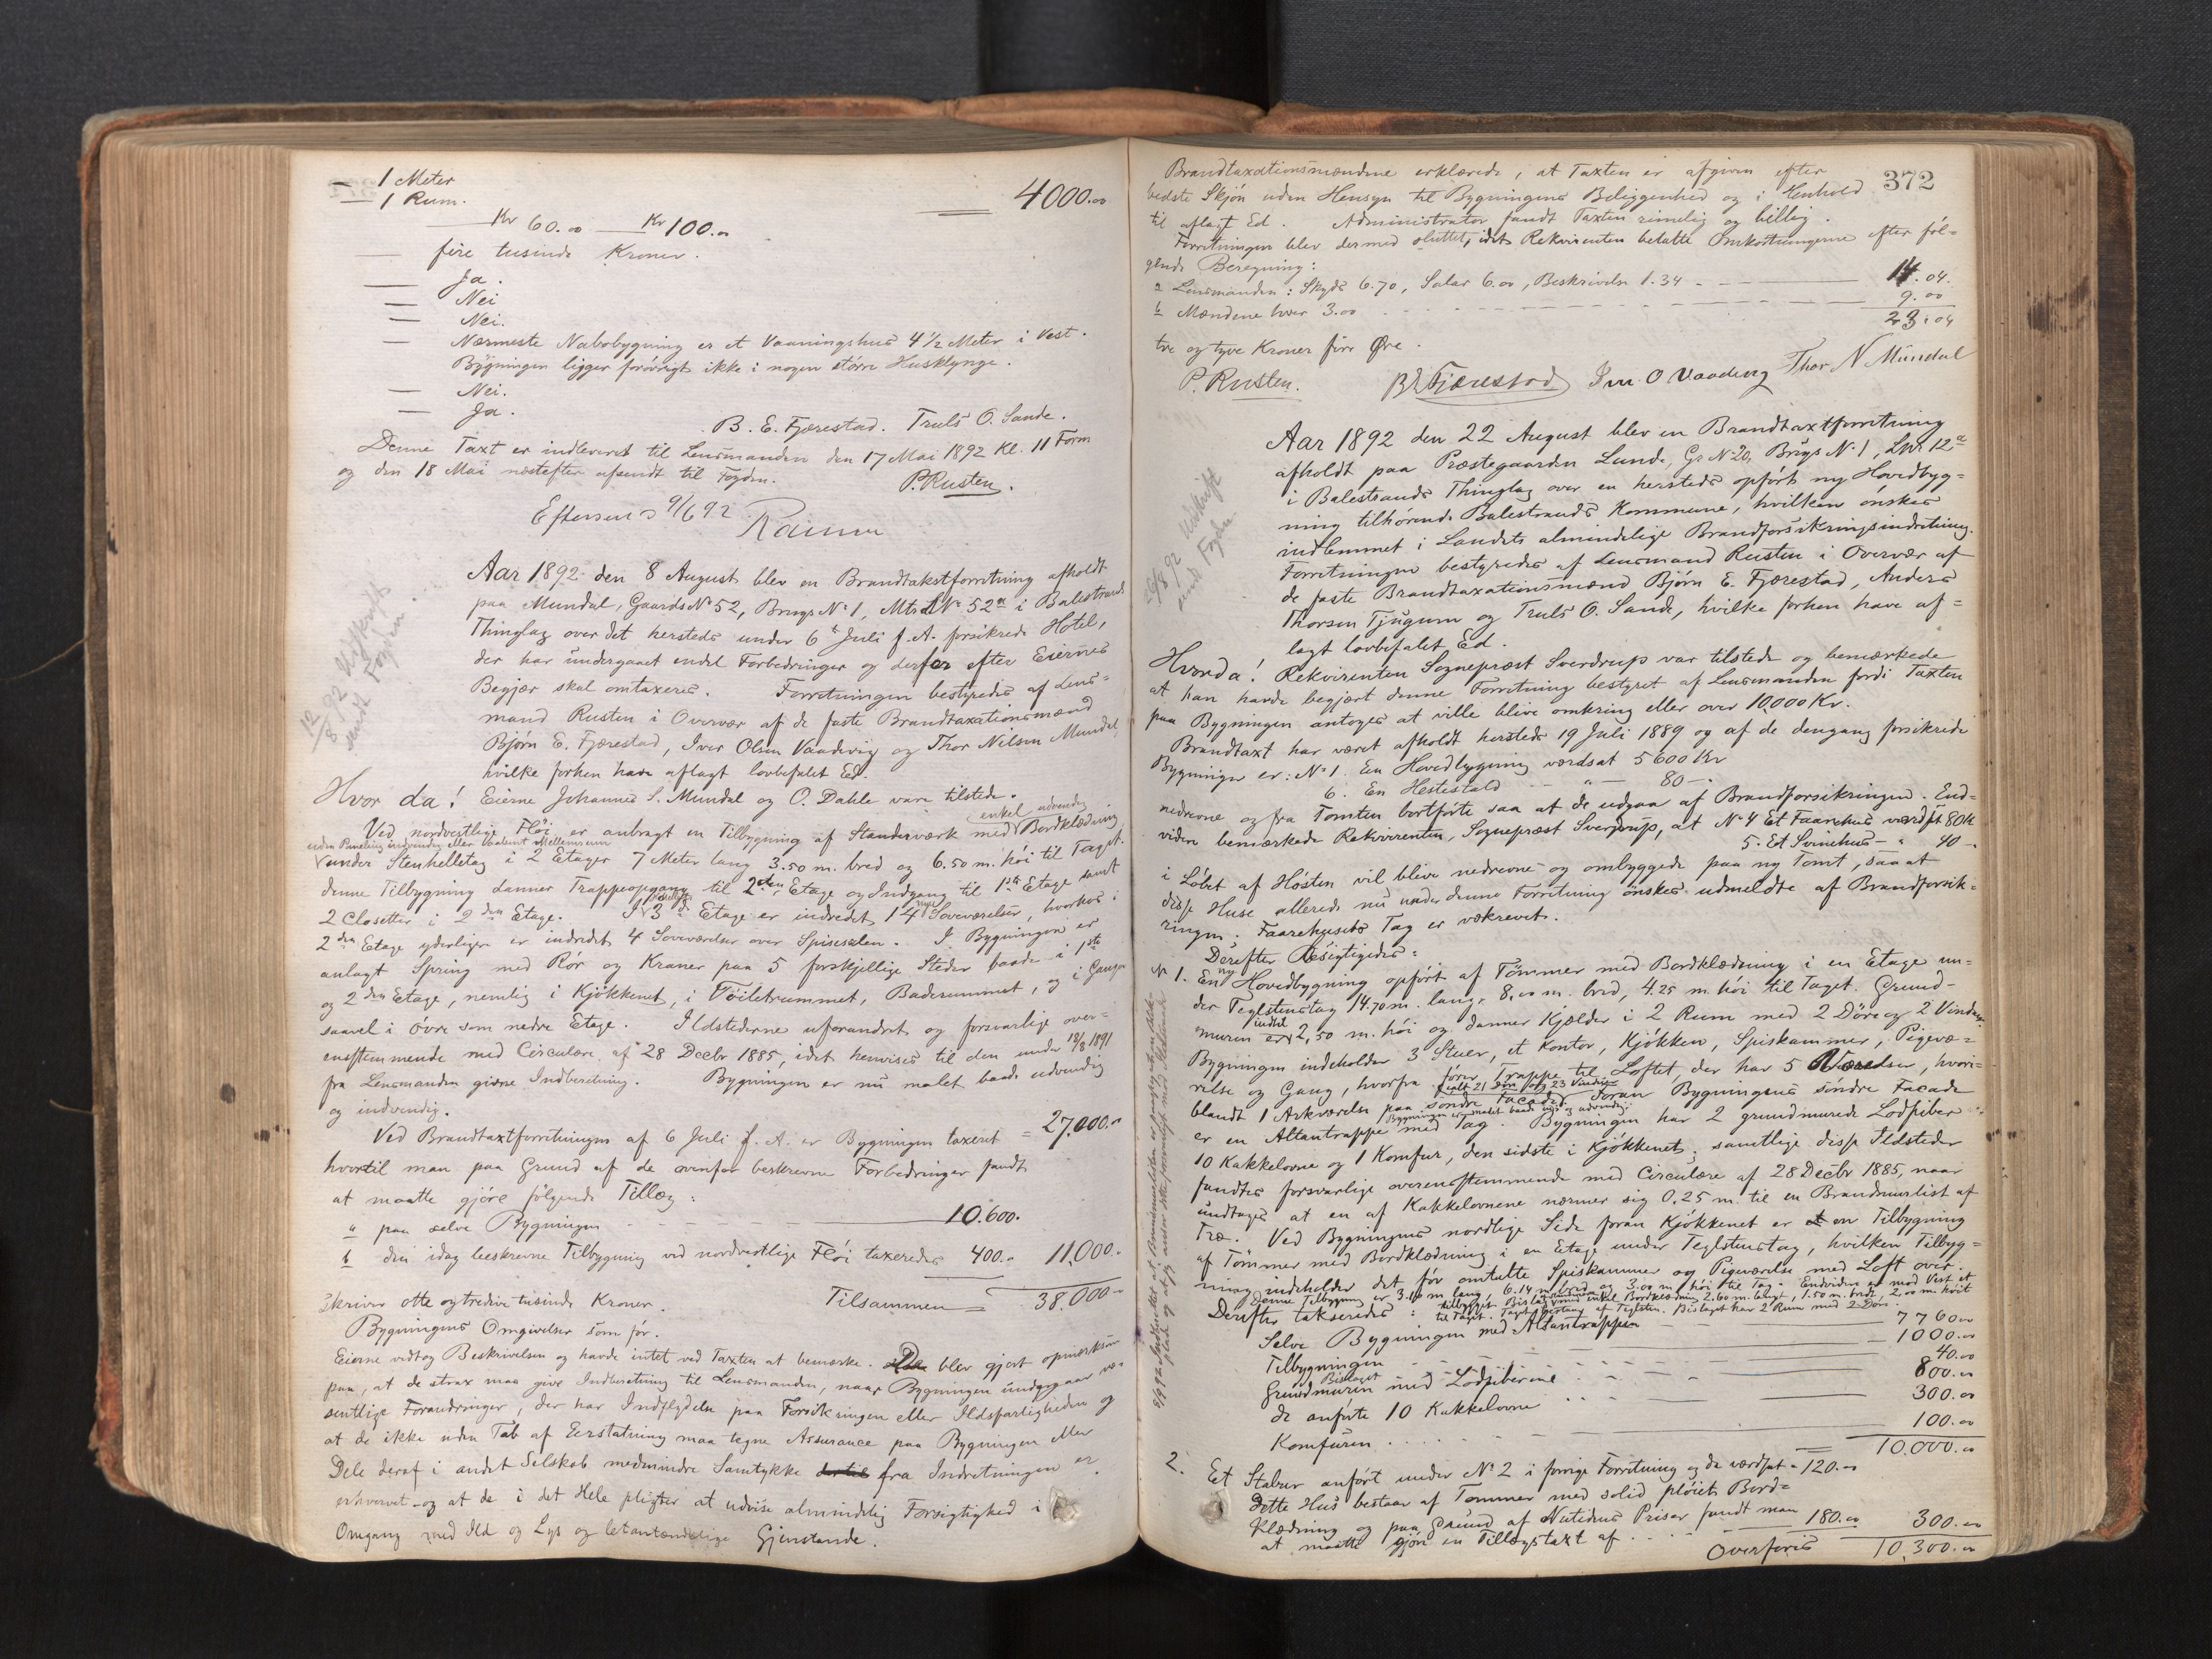 — 1 Meter
— 1 Rum. 4000.00
— Kr 60.00 — Kr 100.00
— fire tusinde Kroner.
— Ja.
— Nei
— Nei.
— Nærmeste Nabobygning er et Vaaningshus 4 1/2 Meter i Vest.
Bygningen ligger forøvrigt ikke i nogen større Husklynge.
— Nei.
— Ja.
B. E. Fjærestad. Truls O. Sande.
Denne Taxt er indleveret til Lensmanden den 17 Mai 1892 Kl. 11 Form
og den 18 Mai næstefter afsendt til Fogden.
P. Rusten.
Efterseet 9/6 92
12/8 92 Udskrift
sendt Fogden.
Aar 1892 den 8 August blev en Brandtakstforretning afholdt
paa Mundal, Gaards No 52, Brugs No 1, Mts LNo 52a i Balestrands
Thinglag over det hersteds under 6te Juli f. A. forsikrede Hotel,
der har undergaaet endel Forbedringer og derfor efter Eiernes
Begjær skal omtaxeres. Forretningen bestyredes af Lens-
mand Rusten i Overvær af de faste Brandtaxationsmænd
Bjørn E. Fjærestad, Iver Olsen Vaadevig og Thor Nilsen Mundal,
hvilke forhen have aflagt lovbefalet Ed.
Hvor da! Eierne Johannes S. Mundal og O. Dahle vare tilstede.
enkel udvendig
Ved nordvestlige Fløi er anbragt en Tilbygning af Standerværk med Bordklædning
uden Paneling indvendig eller Mellemrum
under Stenhelletag i 2 Etager 7 Meter lang 3.50 m. bred og 6.50 m. høi til Taget.
denne Tilbygning danner Trappeopgang til 2den Etage og Indgang til 1ste Etage samt
2 Closetter i 2den Etage. I 3de Etage er indredet 14 nye Soveværelser, hvorhos i
2den Etage yderligere er indredet 4 Soveværelser over Spisesalen. I Bygningen er
anlagt Spring med Rør og Kraner paa 5 forskjellige Steder baade i 1ste
og 2den Etage, nemlig i Kjøkkenet, i Toiletrummet, Baderummet, og i Gangen
saavel i øvre som nedre Etage. Ildstederne uforandret og forsvarlige over-
ensstemmende med Circulære af 28 Decbr 1885, idet henvises til den under 18/8 1891
fra Lensmanden givne Indberetning. Bygningen er nu malet baade udvendig
og indvendig.
Ved Brandtaxtforretningen af 6 Juli f. A. er Bygningen taxeret = 27,000.00
hvortil man paa Grund af de ovenfor beskrevne Forbedringer fandt
at maatte gjøre følgende Tillæg:
a paa selve Bygningen — 10.600.
b den idag beskrevne Tilbygning ved nordvestlige Fløi taxeredes 400.00 11,000.
Skriver otte og tredive tusinde Kroner. Tilsammen = 38,000.00
Bygningens Omgivelser som før.
Eierne vedtog Beskrivelsen og havde intet ved Taxten at bemærke. De blev gjort opmærksom
paa, at de strax maa give Indberetning til Lensmanden, naar Bygningen undergaar væ-
sentlige Forandringer, der har Indflydelse paa Forsikringen eller Ildsfarligheden og
at de ikke uden Tab af Erstatning maa tegne Assurance paa Bygningen eller
Dele deraf i andet Selskab medmindre Samtykke dertil fra Indretningen er
erhvervet og at de i det Hele pligter at udvise almindelig Forsigtighed i
Omgang med Ild og Lys og letantændelige Gjenstande.
372
Brandtaxationsmændene erklærede, at Taxten er afgiven efter
bedste Skjøn uden Hensyn til Bygningens Beliggenhed og i Henhold
til aflagt Ed. Administrator fandt Taxten rimelig og billig.
Forretningen blev dermed sluttet, idet Rekvirenten betalte Omkostningerne efter føl-
gende Beregning:
a Lensmanden: Skyds 6.70, Salar 6.00, Beskrivelse 1.34 — 14.04.
b Mændene hver 3.00 — 9.00
23.04
tre og tyve Kroner fire Øre.
P. Rusten. B E Fjærestad Iver O Vaadevig Thor N Mundal
26/8 92 Udskrift
sendt Fogden
Aar 1892 den 22 August blev en Brandtaxtforretning
afholdt paa Præstegaarden Lunde, G. No 20, Brugs No 1, LNr 12a
i Balestrands Thinglag over en hersteds opført ny Hovedbyg-
ning tilhørende Balestrands Kommune, hvilken ønskes
indlemmet i Landets almindelige Brandforsikringsindretning.
Forretningen bestyredes af Lensmand Rusten i Overvær af
de faste Brandtaxationsmænd Bjørn E. Fjærestad, Anders
Thorsen Tjugum og Truls O. Sande, hvilke forhen have af-
lagt lovbefalet Ed.
Hvorda! Rekvirenten Sognepræst Sverdrup var tilstede og bemærkede
at han havde begjært denne Forretning bestyret af Lensmanden fordi Taxten
paa Bygningen antoges at ville blive omkring eller over 10,000 Kr.
Brandtaxt har været afholdt hersteds 19 Juli 1889 og af de dengang forsikrede
Bygninger er: No 1. En Hovedbygning værdsat 5600 Kr
6. En Hestestald — " — 80 -
nedrevne og fra Tomten bortførte saa at de udgaa af Brandforsikringen. End-
videre bemærkede Rekvirenten, Sognepræst Sverdrup, at No 4 Et Faarehus værdsat 80 Kr
5. Et Svinehus — " 40 -
i Løbet af Høsten vil blive nedrevne og ombyggede paa ny Tomt, saa at
disse Huse allerede nu under denne Forretning ønskes udmeldte af Brandforsik-
ringen. Faarehusets Tag er vækrevet.
Derefter besigtigedes:
No 1. En ny Hovedbygning opført af Tømmer med Bordklædning i en Etage un-
der Teglstenstag 14.70 m. lang, 8,00 m. bred, 4.25 m. høi til Taget. Grund-
muren er indtil 2,50 m. høi og danner Kjælder i 2 Rum med 2 Døre og 2 Vinduer.
Bygningen indeholder 3 Stuer, et Kontor, Kjøkken, Spiskammer, Pigevæ-
relse og Gang, hvorfra fører Trappe til Loftet, der har 5 Værelser, hvori-
ialt 21 Døre og 23 Vinduer
blandt 1 Arkværelse paa søndre Facade. Foran Bygningens søndre Facade
Bygningen er malet baade ind- og udvendig.
er en Altantrappe med Tag. Bygningen har 2 grundmurede Lodpiber
10 Kakkelovne og 1 Komfur, den sidste i Kjøkkenet; samtlige disse Ildsteder
fandtes forsvarlige overensstemmende med Circulære af 28 Decbr 1885, naar
undtages at en af Kakkelovnene nærmer sig 0.25 m. til en Brandmurlist af
Træ. Ved Bygningens nordlige Side foran Kjøkkenet er en Tilbygning
af Tømmer med Bordklædning i en Etage under Teglstenstag, hvilken Tilbyg-
ning indeholder det før omtalte Spiskammer og Pigeværelse med Loft over.
Denne Tilbygning er 3.10 m lang, 6.14 m. bred og 3.00 m. høi til Tag. Endvidere er mod Vest et
tilbygget Bislag med enkel Bordklædning 2.60 m. langt, 1.50 m. bredt, 2,00 m. høit
til Taget. Taget bestaar af Teglsten. Bislaget har 2 Rum med 2 Døre.
Derefter takseredes:
Selve Bygningen med Altantrappen — 7760.00
Tilbygningen — 1000.00
Bislaget — 40.00
Grundmuren med Lodpiberne — 800.00
de anførte 10 Kakkelovne — 300.00
Komfuren — 100.00
10.000.00
2. Et Stabur anført under No 2 i forrige Forretning og da værdsat = 120.00
Dette Hus bestaar af Tømmer med solid pløiet Bord-
klædning og paa Grund af Nutidens Priser fandt man
at maatte gjøre en Tillægstaxt af — 180.00 300.00
Overføres 10.300.00